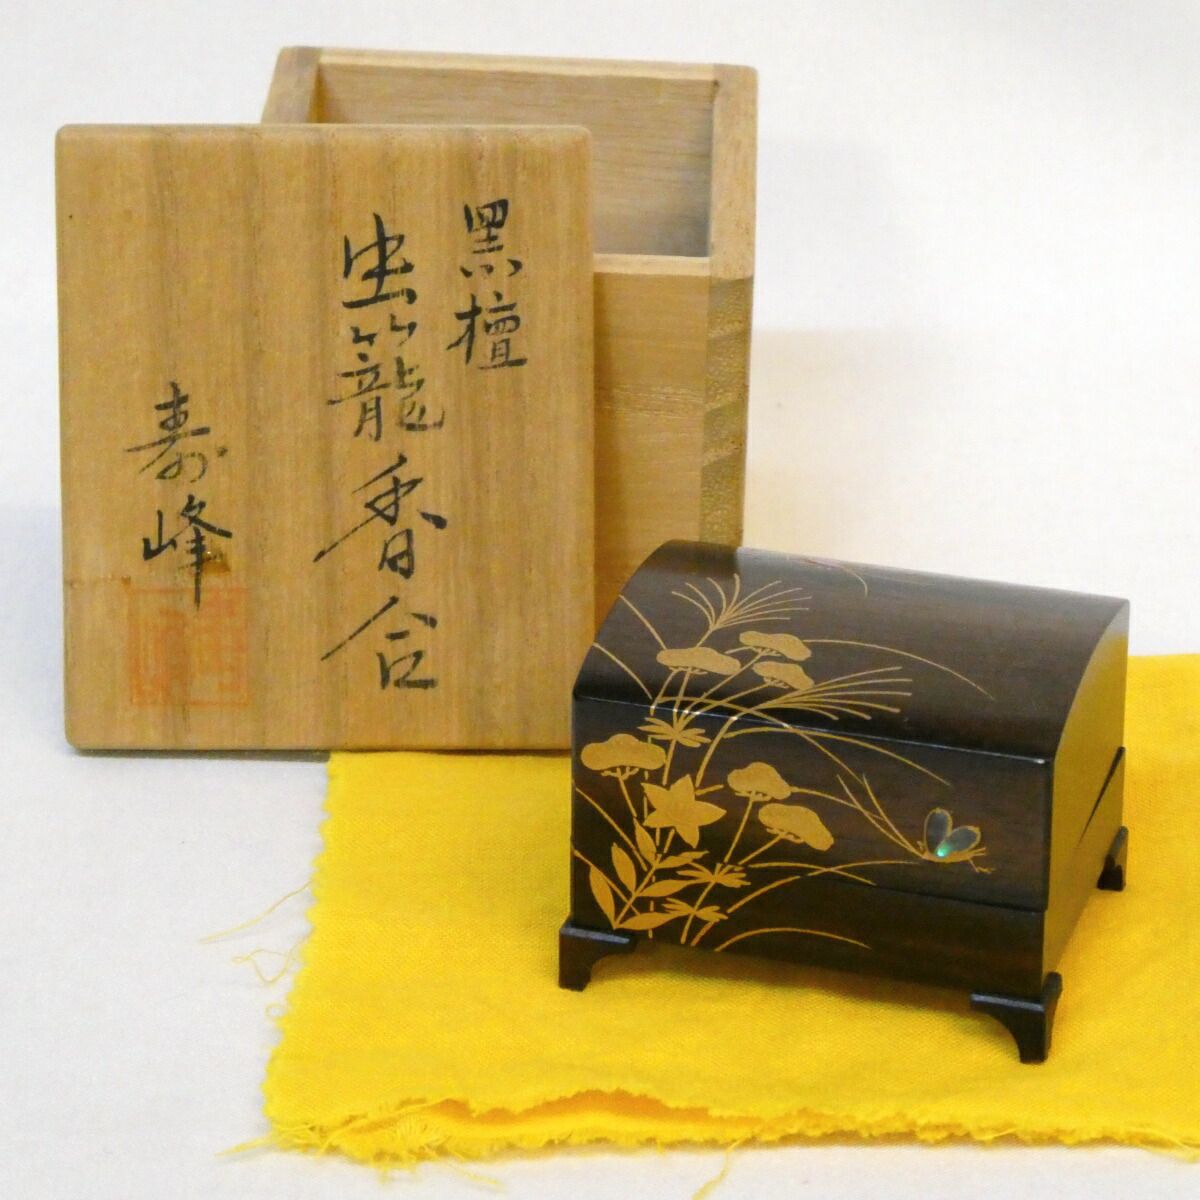 黒檀
虫籠香合
寿峰